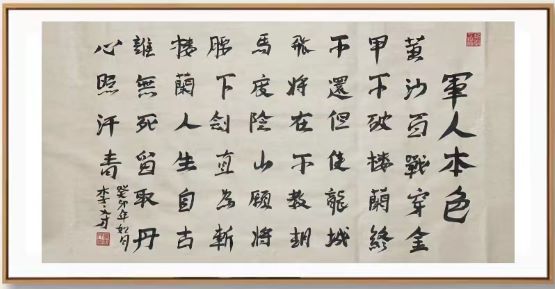 軍人本色
黄沙百戰穿金
甲不破楼蘭終
不還但使龍城
飛将在不教胡
馬度陰山願将
腰下剑直为斬
楼蘭人生自古
誰無死留取丹
心照汗青
癸卯年如月